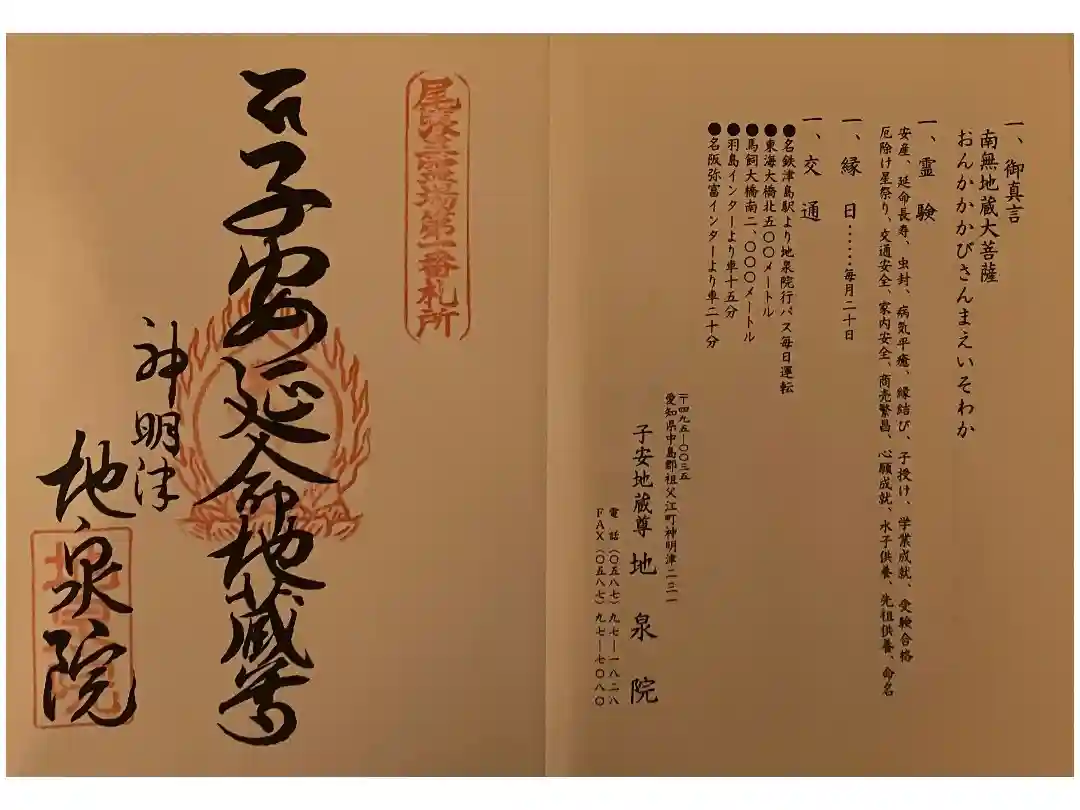 一、御真言
南無地蔵大菩薩
おんかかかびさんまえいそわか
一、霊験
安産、延命長寿、虫封、病気平癒、縁結び、子授け、学業成就、受験合格
厄除け星祭り、交通安全、家内安全、商売繁昌、心願成就、水子供養、先祖供養、命名
一、縁日……毎月二十日
一、交通
●名鉄津島駅より地泉院行バス毎日運転
●東海大橋北五〇〇メートル
●馬飼大橋南二、〇〇〇メートル
●羽島インターより車十五分
●名阪弥富インターより車二十分
〒四九五―〇〇三五
愛知県中島郡祖父江町神明津二二一
子安地蔵尊 地泉院
電話（〇五八七）九七―一八二八
ＦＡＸ（〇五八七）九七―七〇八〇
尾霊場第一番札所
子安延命地蔵尊
神明津
地泉院